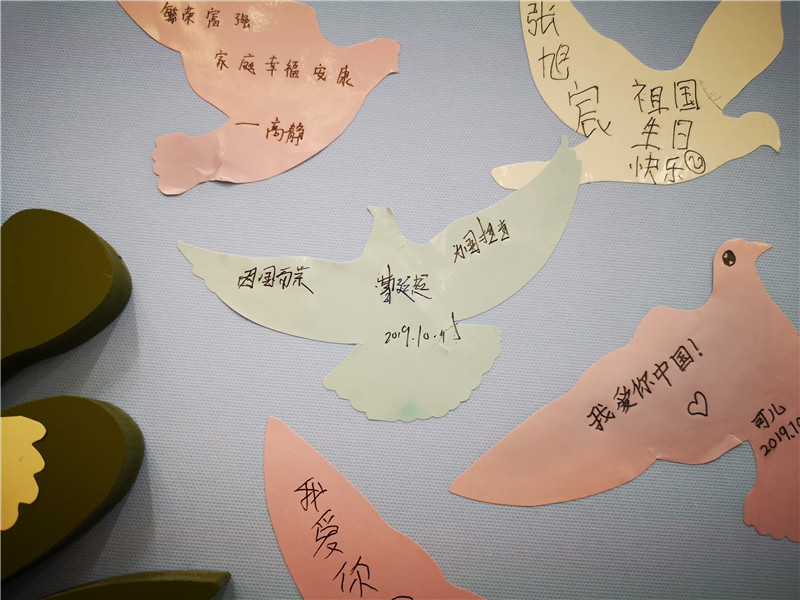 繁荣富强
家庭幸福安康
一高静
张旭宸
祖国
生日
快乐
因国而荣
为国担当
2019.10.
我爱你中国!
可儿
2019.10
我爱你